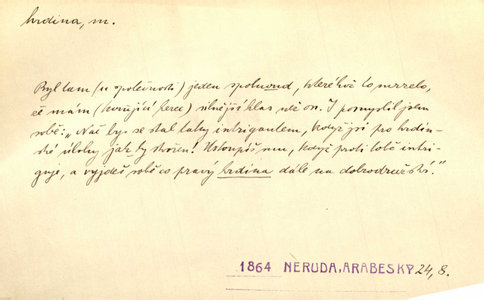 hrdina, m.
Byl tam (u společnosti) jeden spoluoud, kteréhož to mrzelo,
že mám (kořující herec) silnější hlas než on. I pomyslil jsem
sobě: „Nač by se stal taky intrigantem, když jsi pro hrdin-
ské úlohy jak by stvořen! Ustoupíš mu, když proti tobě intri-
guje, a vyjdeš sobě co pravý hrdina dále na dobrodružství."
1864 NERUDA, ARABESKY 24, 8.